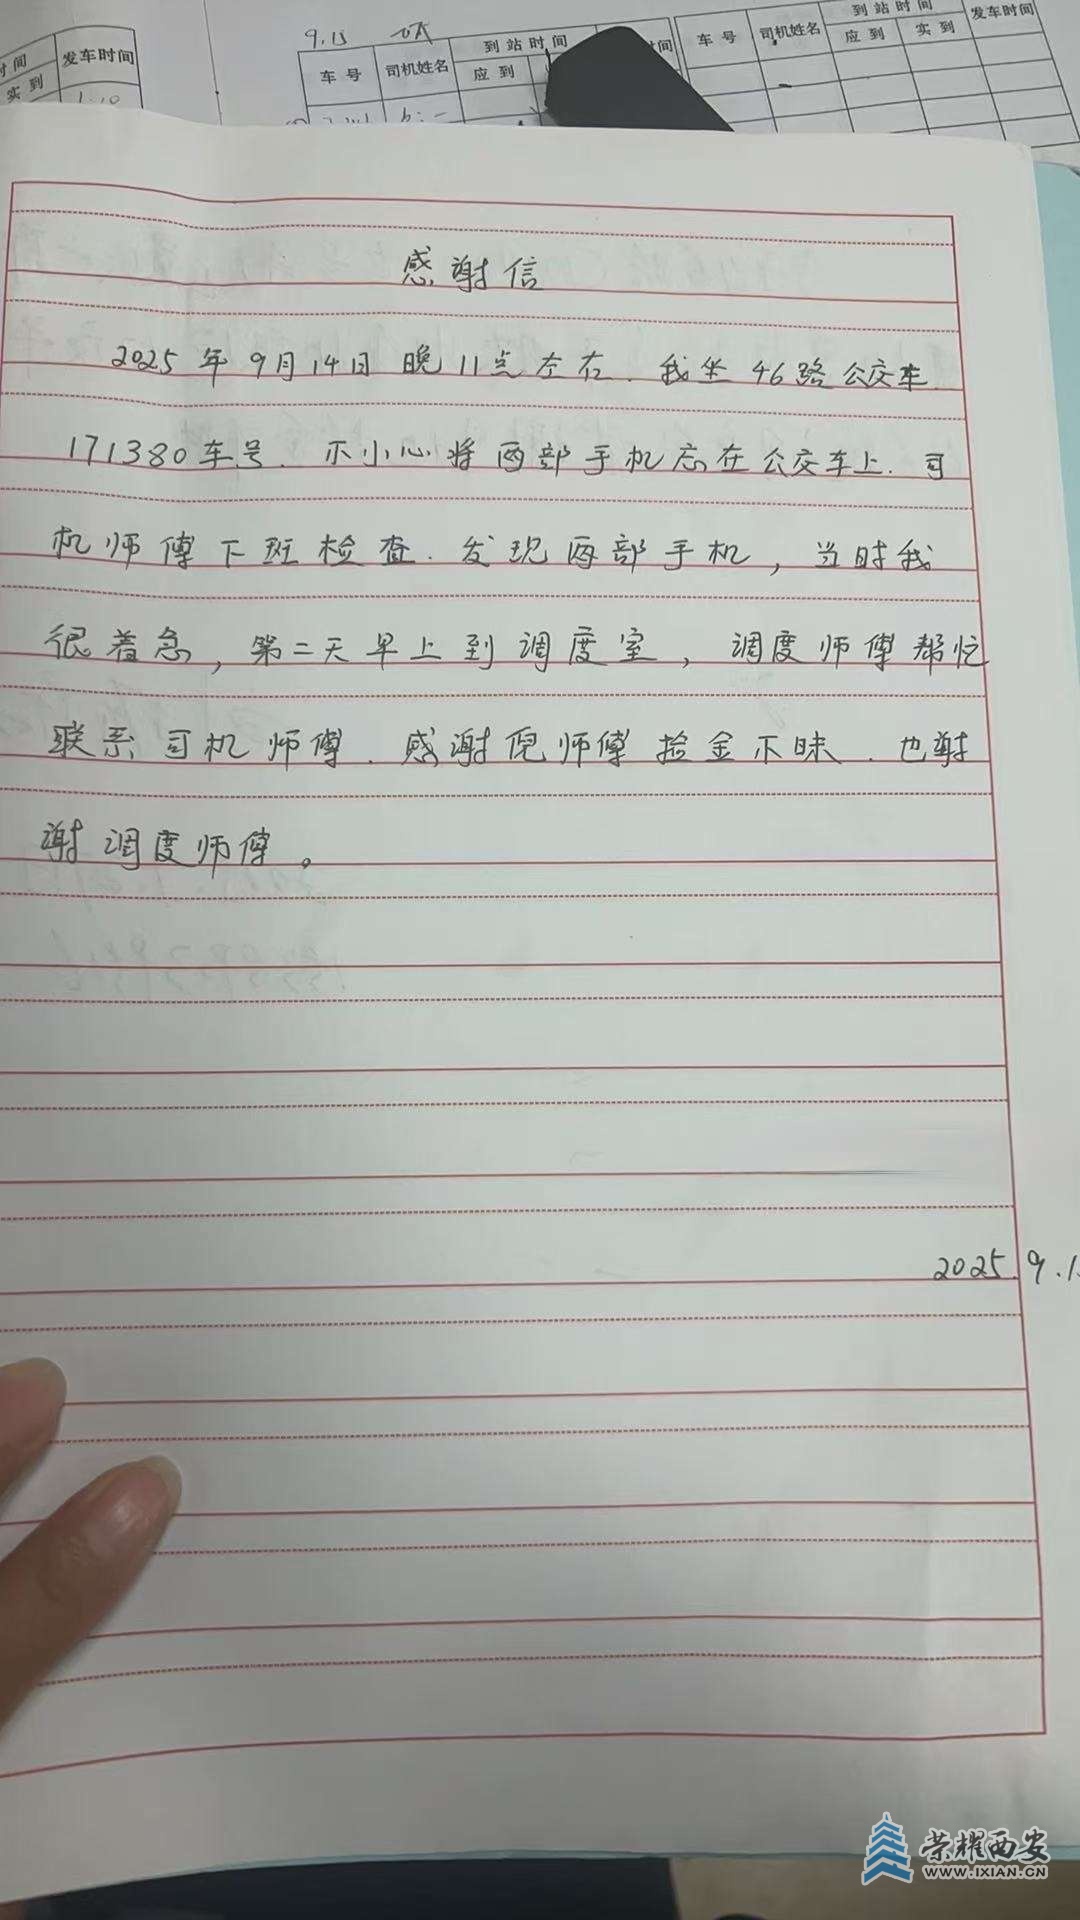 时间
发车时间
实到
9.15
车号 司机姓名 到站时间
应到
车号 司机姓名 到站时间 发车时间
应到 实到
感谢信
2025年9月14日晚11点左右.我坐46路公交车.
171380车号.不小心将两部手机忘在公交车上.司
机师傅下班检查.发现两部手机，当时我
很着急，第二天早上到调度室，调度师傅帮忙
联系司机师傅.感谢倪师傅拾金不昧.也谢
谢调度师傅。
2025.9.1
荣耀西安
WWW.IXIAN.CN